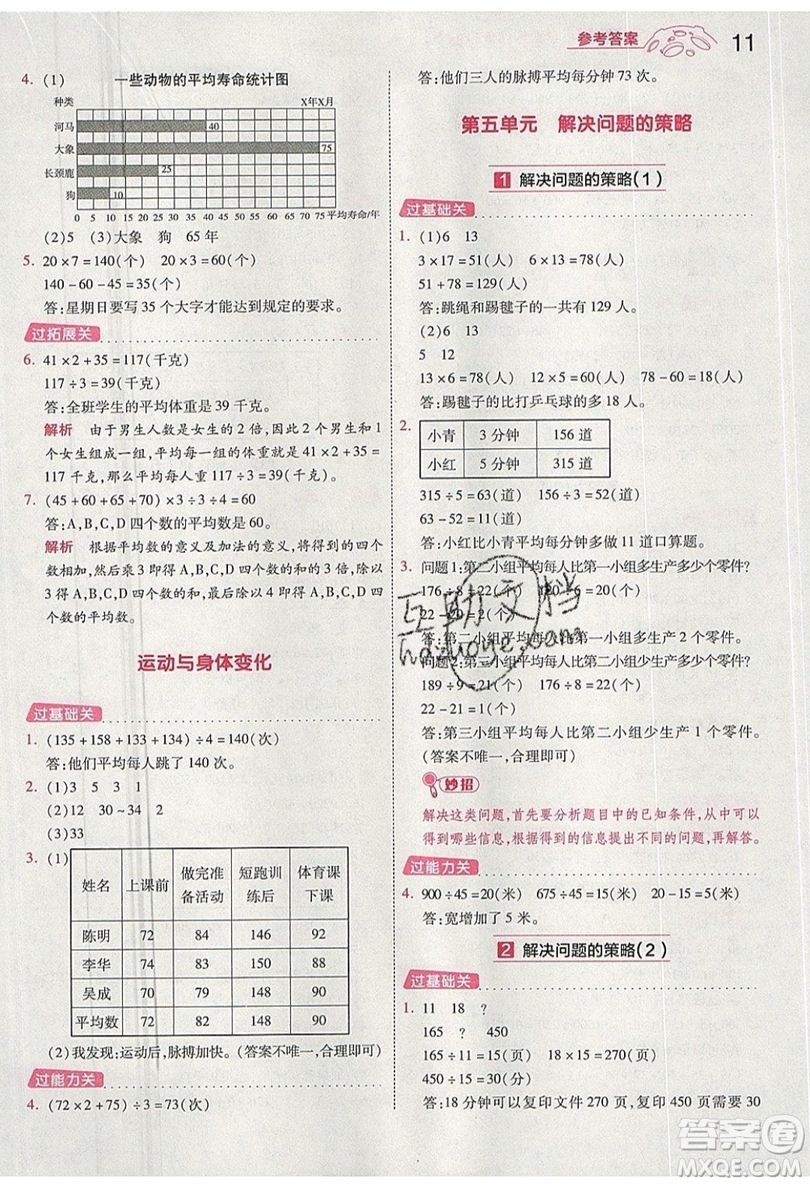 参考答案 11
4. (1) 一些动物的平均寿命统计图
种类 X年X月
河马 40
大象 75
长颈鹿 25
狗 10
0 5 10 15 20 25 30 35 40 45 50 55 60 65 70 75 平均寿命/年
(2)5 (3)大象 狗 65年
5. 20×7=140(个) 20×3=60(个)
140-60-45=35(个)
答:星期日要写35个大字才能达到规定的要求。
过拓展关
6. 41×2+35=117(千克)
117÷3=39(千克)
答:全班学生的平均体重是39千克。
解析 由于男生人数是女生的2倍,因此2个男生和1
个女生成一组,平均每一组的体重就是41×2+35=
117千克,那么平均体重117÷3=39(千克)。
7. (45+60+75)×3÷3÷3=60
答:A,B,C,D四个数的平均数是60。
解析 根据平均数的意义及加法的意义,将得到的三个
数相加,然后乘3得到A,B,C,D四个数和的3倍,除以
3得A,B,C,D四个数的和,最后除以4得A,B,C,D四
个数的平均数。
运动与身体变化
过基础关
1. (135+158+133+134)÷4=140(次)
答:他们平均每人跳了140次。
2. (1)3 5 3 1
(2)12 30~34 2
(3)33
3. (1)
姓名 上课前 做完准备活动 短跑训练后 体育课下课
陈明 72 84 146 92
李华 72 80 150 88
吴成 72 82 148 90
平均数 72 82 148 90
(2)我发现:运动后,脉搏加快。(答案不唯一,合理即可)
过能力关
4. (72×2+75)÷3=73(次)
答:他们三人的脉搏平均每分钟73次。
第五单元 解决问题的策略
1 解决问题的策略(1)
过基础关
1. (1)6 13
3×17=51(人) 6×13=78(人)
51+78=129(人)
答:跳绳和踢毽子的一共有129人。
(2)6 13
5 12
13×6=78(人) 12×5=60(人) 78-60=18(人)
答:踢毽子的比打乒乓球的多18人。
2.
小青 3分钟 156道
小红 5分钟 315道
315÷5=63(道) 156÷3=52(道)
63-52=11(道)
答:小红比小青平均每分钟多做11道口算题。
3. 问题1:第二小组平均每人比第一小组多生产多少个零件?
176÷8=22(个) 140÷7=20(个)
22-20=2(个)
答:第二小组平均每人比第一小组多生产2个零件。
问题2:第三小组平均每人比第二小组少生产多少个零件?
189÷9=21(个) 176÷8=22(个)
22-21=1(个)
答:第三小组平均每人比第二小组少生产1个零件。
(答案不唯一,合理即可)
妙招
解决这类问题,首先要分析题目中的已知条件,从中可以
得到哪些信息,根据得到的信息提出不同的问题,再解答。
过能力关
4. 900÷45=20(米) 675÷45=15(米) 20-15=5(米)
答:宽增加了5米。
2 解决问题的策略(2)
过基础关
1. 11 18 ?
165 ? 450
165÷11=15(页) 18×15=270(页)
450÷15=30(分)
答:18分钟可以复印文件270页,复印450页需要30
互助文档
hdzuoye.com
答案圈
MXQE.COM